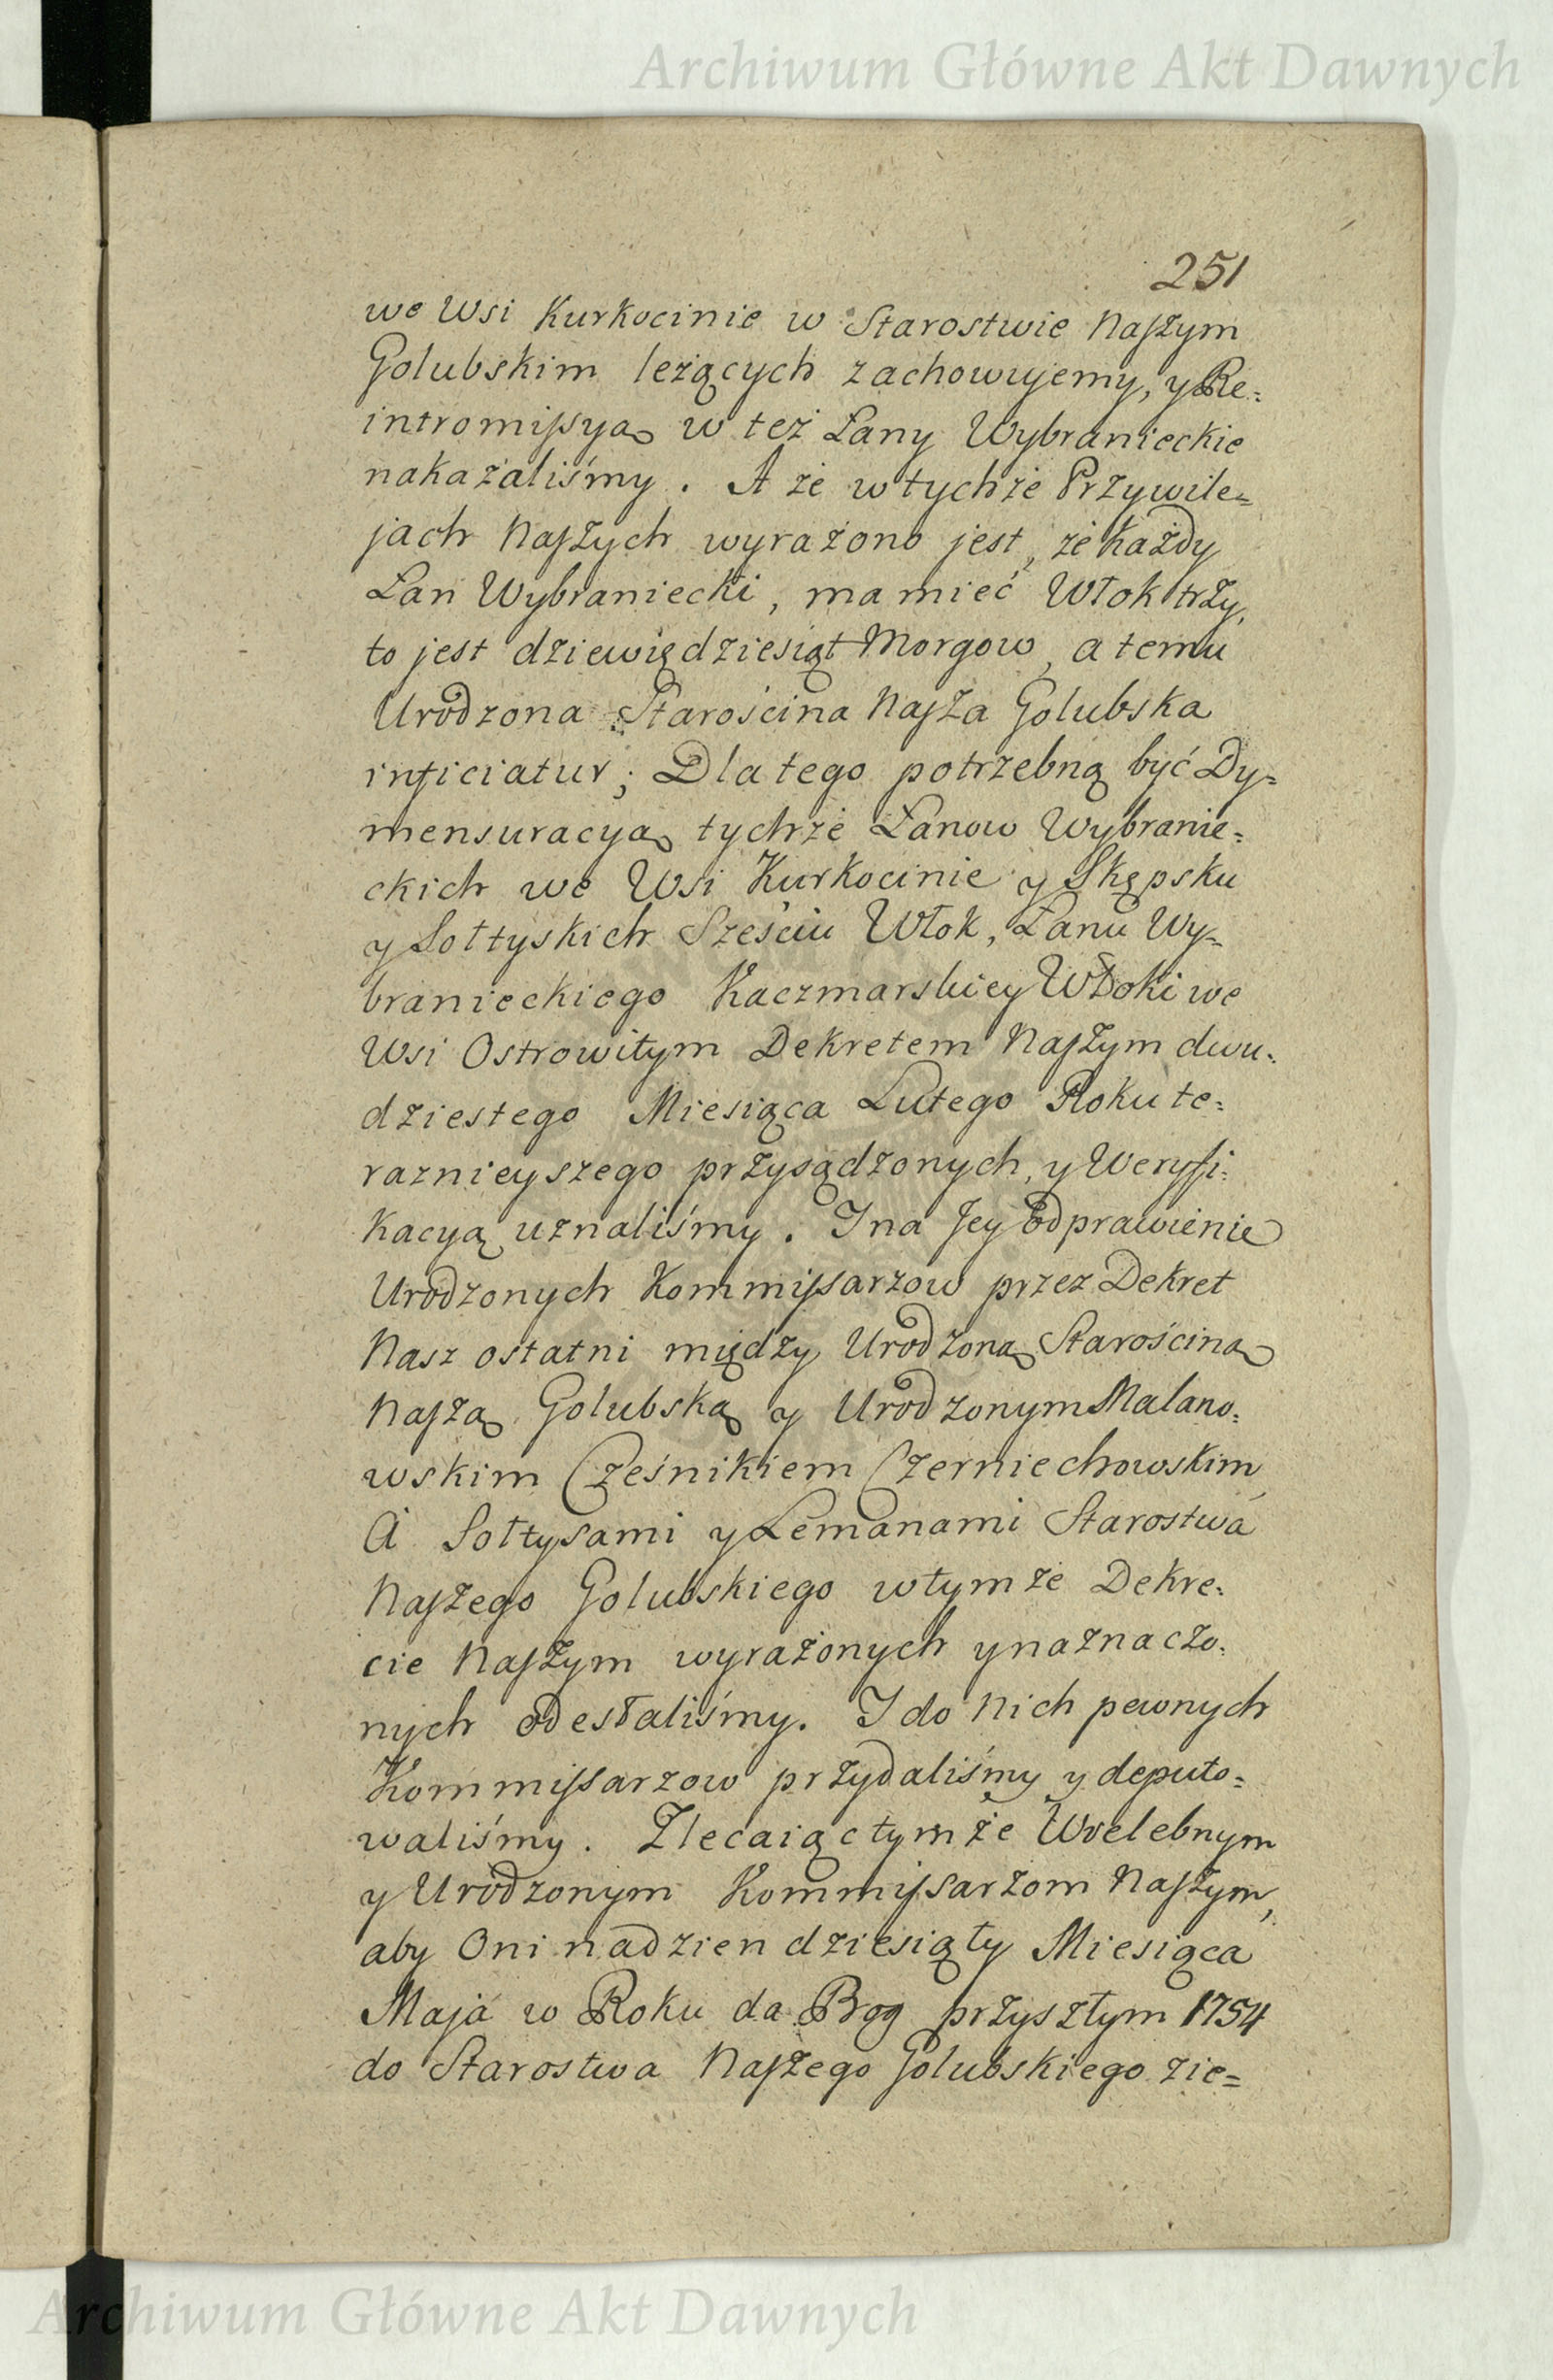 Archiwum Główne Akt Dawnych
251
we Wsi Kurkocinie w Starostwie Naszym
Golubskim leżących zachowujemy, y Re:
intromissyą w też Łany Wybranieckie
nakazaliśmy. A że w tychże Przywile=
jach Naszych wyrażono jest, że każdy
Łan Wybraniecki, ma mieć Włok trzy,
to jest dziewiędziesiąt Morgow, a temu
Urodzona Starościna Nasza Golubska
inficiatur; Dla tego potrzebną być Dy=
mensuracyą tychże Łanow Wybranie:
ckich we Wsi Kurkocinie y Skępsku
y Sołtyskich Sześciu Włok, Łanu Wy=
branieckiego Kaczmarskiey Włoki we
Wsi Ostrowitym Dekretem Naszym dwu:
dziestego Miesiąca Lutego Roku te:
raznieyszego przysądzonych, y Weryfi:
kacyą uznaliśmy. I na Jey odprawienie
Urodzonych Kommissarzow przez Dekret
Nasz ostatni między Urodzoną Starościną
Naszą Golubską y Urodzonym Malano:
wskim Cześnikiem Czerniechowskim
A Sołtysami y Lemanami Starostwa
Naszego Golubskiego w tymże Dekre:
cie Naszym wyrażonych y naznaczo:
nych odesłaliśmy. I do Nich pewnych
Kommissarzow przydaliśmy y deputo=
waliśmy. Zlecaiąc tymże Wielebnym
y Urodzonym Kommissarzom Naszym,
aby Oni na dzien dziesiąty Miesiąca
Maja w Roku da Bog przyszłym 1754
do Starostwa Naszego Golubskiego zie=
Archiwum Główne Akt Dawnych